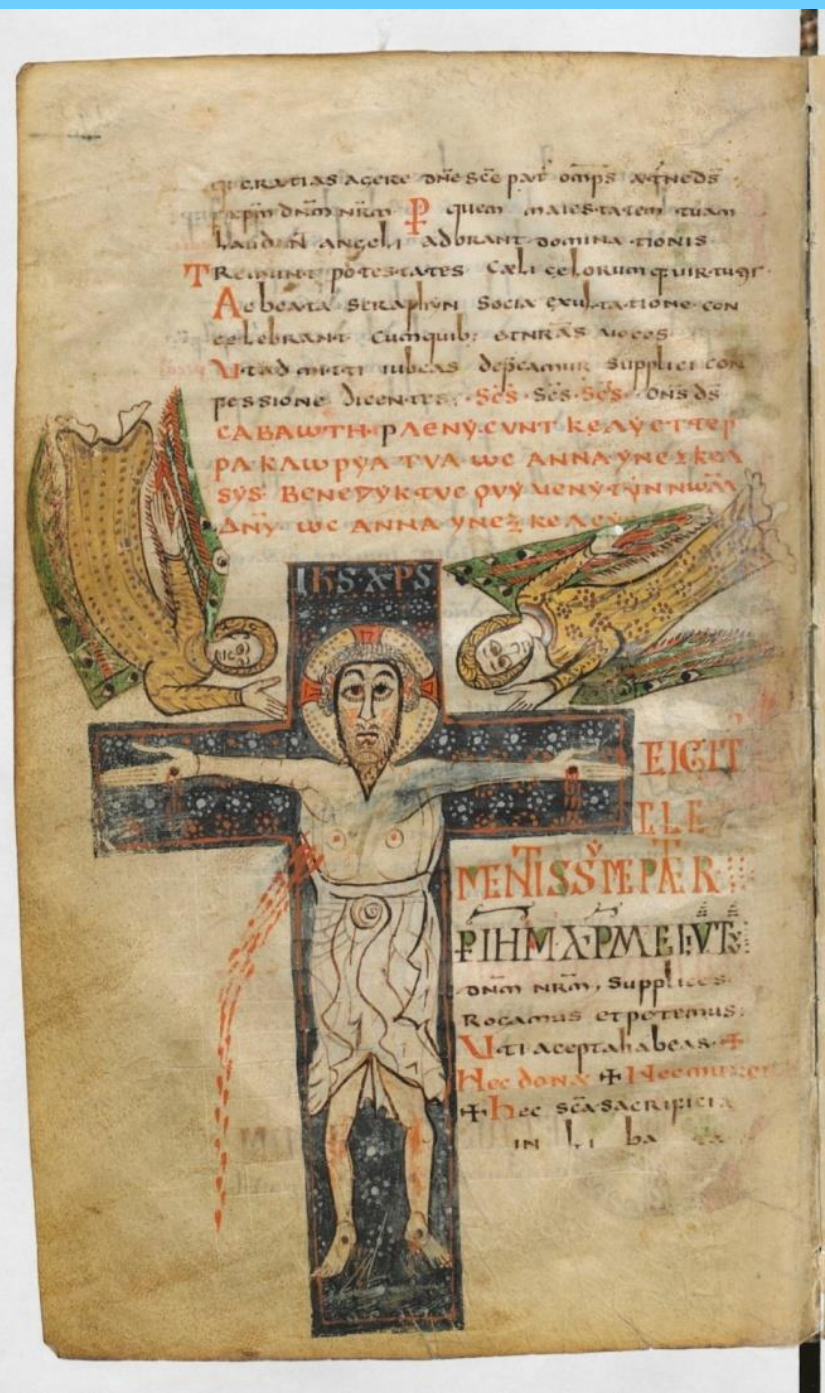 GRATIAS AGERE dn̄e sc̄e pat̄ omp̄s
xp̄m dn̄m nr̄m P quem maiestatem tuam
laudan̄ angeli adorant dominationis
Tremunt potestates cæli celorumq uirtutes
Ac beata seraphyn socia exultatione con
celebrant cumquib: et nr̄as uoces
Ut admitti iubeas dep̄camur supplici con
fessione dicentes. Sc̄s Sc̄s Sc̄s dn̄s ds̄
CABAωTH PΛENY CVNT KEΛY ET TEP
PA KΛωPYA TVA ωC ANNA YN EΞKEΛ
SYS BENEDYKTVC QVY VENYT YN NωM̄
ΔNY ωC ANNA YN EΞKEΛCY
IHS·XPS
EIGIT
CLE
MENTISSYME PATER
P IHM XPM
dn̄m nr̄m, supplices
Rogamus et petemus:
Uti acepta habeas ✠
Hec dona ✠ Hec munera
✠ Hec sc̄a sacrificia
in li ba ta